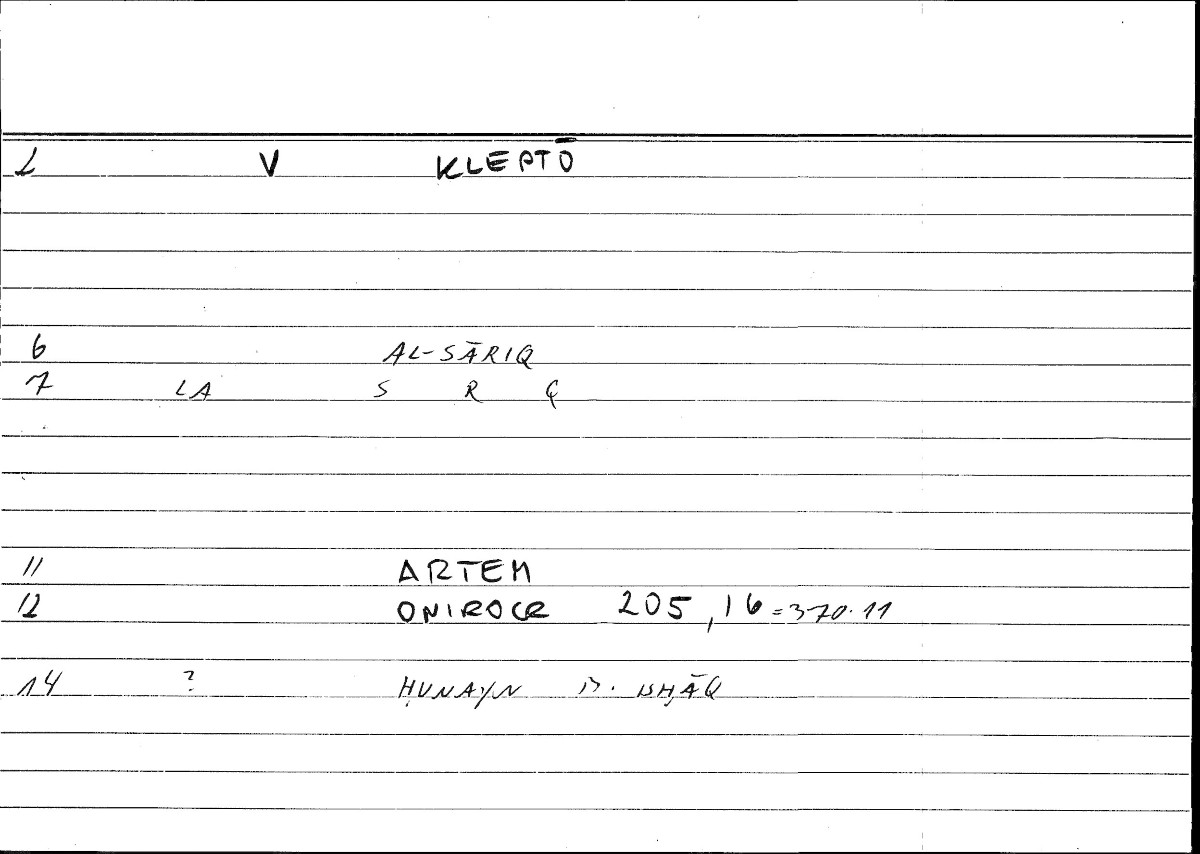 1 V KLEPTŌ
6 AL-SĀRIQ
7 LA S R Q
11 ARTEM
12 ONIROCR 205,16 =370.11
14 ? ḤUNAYN B. ISḤĀQ